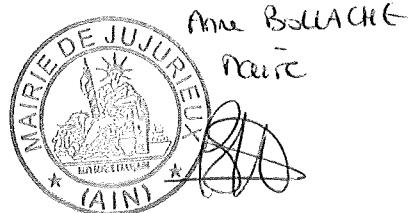 Anne BOLLACHE
Maire
MAIRIE DE JUJURIEUX
(AIN)